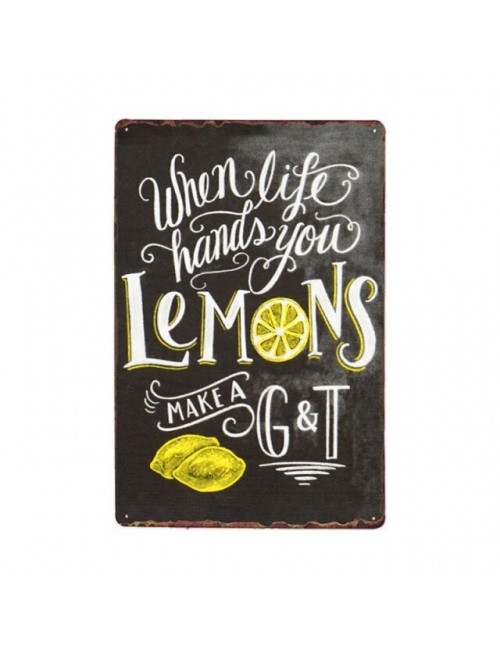 When life
hands you
LeMONS
MAKE A
G & T